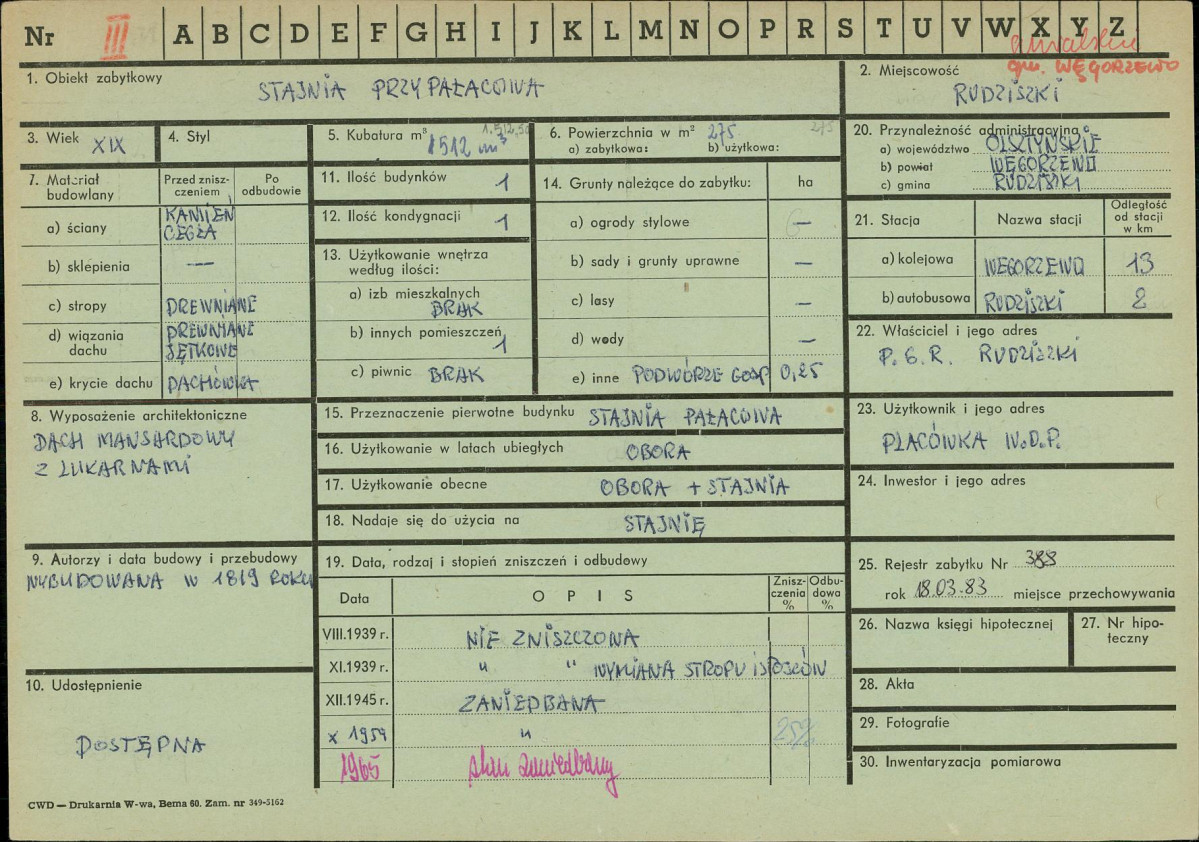 Nr III A B C D E F G H I J K L M N O P R S T U V W X Y Z
suwalskie
gm. WĘGORZEWO
1. Obiekt zabytkowy
STAJNIA PRZYPAŁACOWA
2. Miejscowość
RUDZISZKI
3. Wiek XIX
4. Styl
5. Kubatura m³ 1512 m³
6. Powierzchnia w m² 275 275
a) zabytkowa: b) użytkowa:
7. Materiał budowlany
Przed znisz-
czeniem
Po
odbudowie
a) ściany KAMIEŃ
CEGŁA
b) sklepienia —
c) stropy DREWNIANE
d) wiązania dachu DREWNIANE
SĘTKOWE
e) krycie dachu DACHÓWKA
8. Wyposażenie architektoniczne
DACH MANSARDOWY
Z LUKARNAMI
9. Autorzy i data budowy i przebudowy
WYBUDOWANA W 1819 ROKU
10. Udostępnienie
DOSTĘPNA
11. Ilość budynków 1
12. Ilość kondygnacji 1
13. Użytkowanie wnętrza
według ilości:
a) izb mieszkalnych
BRAK
b) innych pomieszczeń
1
c) piwnic BRAK
14. Grunty należące do zabytku: ha
a) ogrody stylowe —
b) sady i grunty uprawne —
c) lasy —
d) wody —
e) inne PODWÓRZE GOSP 0,25
15. Przeznaczenie pierwotne budynku STAJNIA PAŁACOWA
16. Użytkowanie w latach ubiegłych OBORA
17. Użytkowanie obecne OBORA + STAJNIA
18. Nadaje się do użycia na STAJNIĘ
19. Data, rodzaj i stopień zniszczeń i odbudowy
Data OPIS
Znisz-
czenia
%
Odbu-
dowa
%
VIII.1939 r. NIE ZNISZCZONA
XI.1939 r. " " WYMIANA STROPU I SŁOSKÓW
XII.1945 r. ZANIEDBANA
X 1959 " 25%
1965 stan zaniedbany
20. Przynależność administracyjna
a) województwo OLSZTYŃSKIE
b) powiat WĘGORZEWO
c) gmina RUDZISZKI
21. Stacja Nazwa stacji
Odległość
od stacji
w km
a) kolejowa WĘGORZEWO 13
b) autobusowa RUDZISZKI 2
22. Właściciel i jego adres
P.G.R. RUDZISZKI
23. Użytkownik i jego adres
PLACÓWKA W.O.P.
24. Inwestor i jego adres
25. Rejestr zabytku Nr 388
rok 18.03.83 miejsce przechowywania
26. Nazwa księgi hipotecznej
27. Nr hipo-
teczny
28. Akta
29. Fotografie
30. Inwentaryzacja pomiarowa
CWD — Drukarnia W-wa, Bema 60. Zam. nr 349-5162